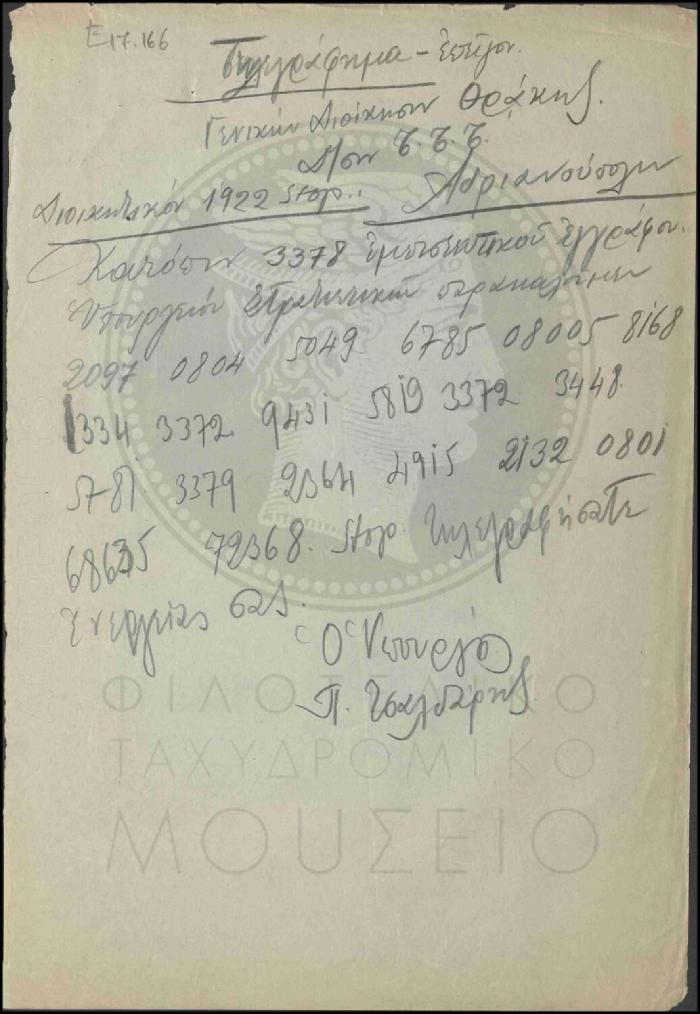 Ε17.166
Τηλεγράφημα – επείγον.
Γενικήν Διοίκησιν Θράκης.
Δ/σιν Τ.Τ.Τ.
Διοικητικόν 1922 Stop.. Αδριανούπολιν
Κατόπιν 3378 εμπιστευτικού εγγράφου.
Υπουργείου Στρατιωτικών παρακαλούμεν
2097 0804 5049 6785 08005 8168
1334 3372 9431 5819 3372 3448.
5781 3379 2364 4915 2132 0801
68635 72368. Stop. Τηλεγραφήσατε
ενεργείας σας.
Ο Υπουργός
Π. Τσαλδάρης.
ΦΙΛΟΤΕΛΙΚΟ
ΤΑΧΥΔΡΟΜΙΚΟ
ΜΟΥΣΕΙΟ